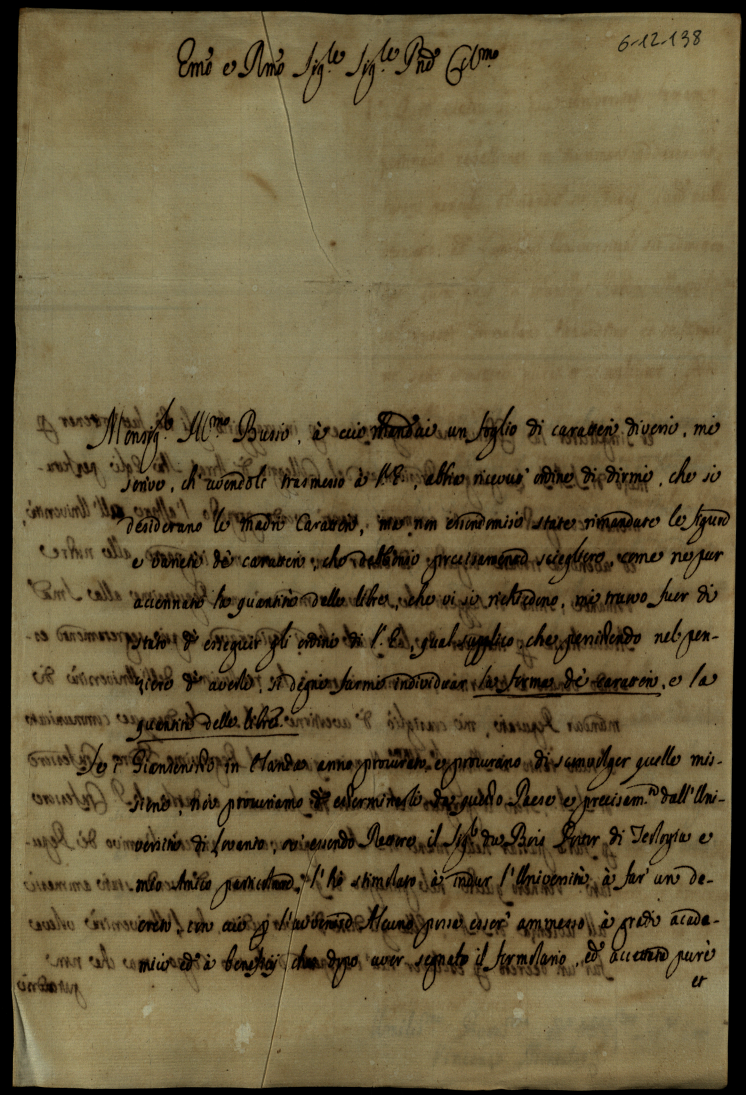 6-12-138
Emo e Rmo Sig.re Sig.re Pne Col.mo
Monsig.re Ill.mo Bussi, à cui mandai un foglio di caratteri diversi, mi
scrive, ch'avendoli trasmesso à V.E., abbia ricevuto ordine di dirmi, che si
desiderano le madri Caratteri, ma non essendomisi state rimandate le figure
e varietà de caratteri, che debbono precisamente sciegliere, come ne pur
accennato la quantità delle libre, che vi si richiedono, mi trovo fuor di
stato d'esseguir gli ordini di V.E., qual supplico, che persistendo nel pen-
siero d'averle, si degni farmi individuar la forma de caratteri, e la
quantità delle libre.
Se i Giansenisti in Olanda anno procurato, e procurano di scinvolger quelle mis-
sioni, noi procuriamo di esterminarli da questo Paese e precisam.te dall'Uni-
versità di Lovanio, ov'essendo Rettore il Sig.r du Bois Dottor di Teologia e
mio Amico particolare, l'hò stimolato à indur l'Università à far un de-
creto, con cui p l'avvenire Alcuno possa esser ammesso à gradi acade-
mici ed à beneficij, che dopo aver segnato il formolario, ed accettato pure
et